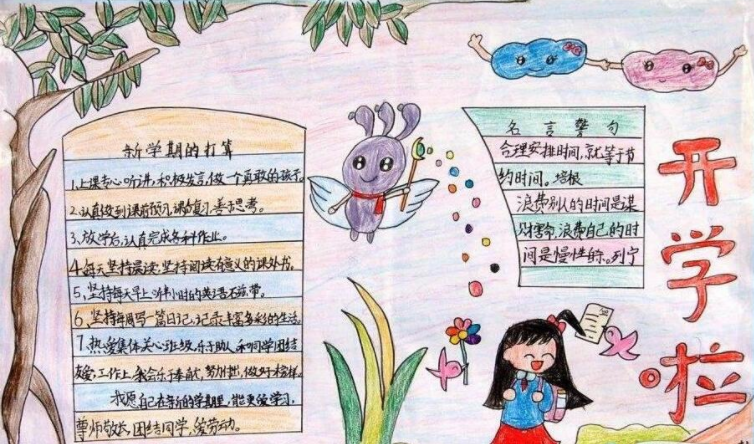 新学期的打算
1.上课专心听讲,积极发言,做一个勇敢的孩子。
2.认真做到课前预习,课后复习,善于思考。
3、放学后,认真完成各种作业。
4.每天坚持晨读,坚持阅读有意义的课外书。
5,坚持每天早上听半小时的英语磁带。
6、坚持每周写一篇日记,记录丰富多彩的生活。
7.热爱集体关心班级,乐于助人,和同学团结
友爱,工作上,我会乐于奉献,努力付出,做好榜样。
我愿自己在新的学期里,能更爱学习,
尊师敬长,团结同学,爱劳动。
名言警句
合理安排时间,就等于节
约时间。培根
浪费别人的时间是谋
财害命,浪费自己的时
间是慢性的。列宁
开学啦